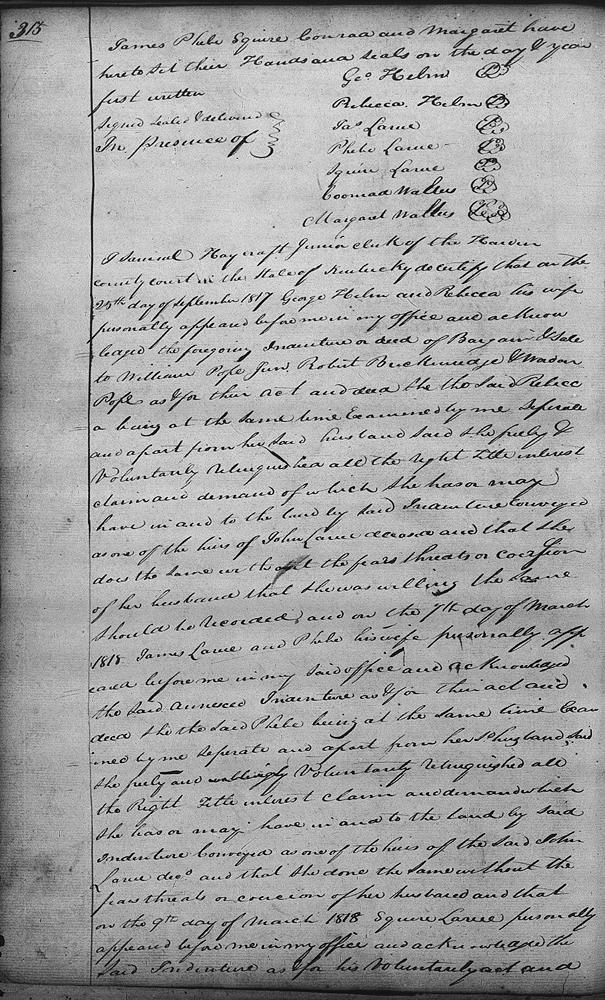 315
James Phebe Squire Conrad and Margaret have
hereto set their Hands and seals on the day & year
first written
Signed sealed & delivered
In presence of
Geo Helm
Rebecca Helm
Jas Larue
Phebe Larue
Squire Larue
Coonrad Walters
Margaret Walters
I Samuel Haycraft Junior clerk of the Hardin
county court in the State of Kentucky do certify that on the
25th day of September 1817 George Helm and Rebecca his wife
personally appeard before me in my office and acknow
ledged the foregoing Indenture or deed of Bargain & Sale
to William Pope Junr Robert Breckenridge & Worden
Pope as & for their act and deed She the Said Rebec
a being at the Same time Examined by me Seperate
and apart from her Said husband Said She freely &
Voluntarily relinquished all the right Title interest
claim and demand of which She has or may
have in and to the land by Said Indenture Conveyed
as one of the heirs of John Larue deceased and that She
does the Same without the fears threats or coercion
of her husband that She was willing the Same
Should be recorded and on the 7th day of March
1818 James Larue and Phebe his wife personally app
eared before me in my Said office and acknowledged
the Said annexed Indenture as & for their act and
deed She the Said Phebe being at the Same time Exam
ined by me Seperate and apart from her Sd husband Said
She freely and willingly Voluntarily relinquished all
the Right Title interest Claim and demand which
She has or may have in and to the land by Said
Indenture Conveyed as one of the heirs of the Said John
Larue decd and that She done the Same without the
fears threats or coercion of her husband and that
on the 9th day of March 1818 Squire Larue personally
appeared before me in my office and acknowledged the
Said Indenture as & for his Voluntary act and